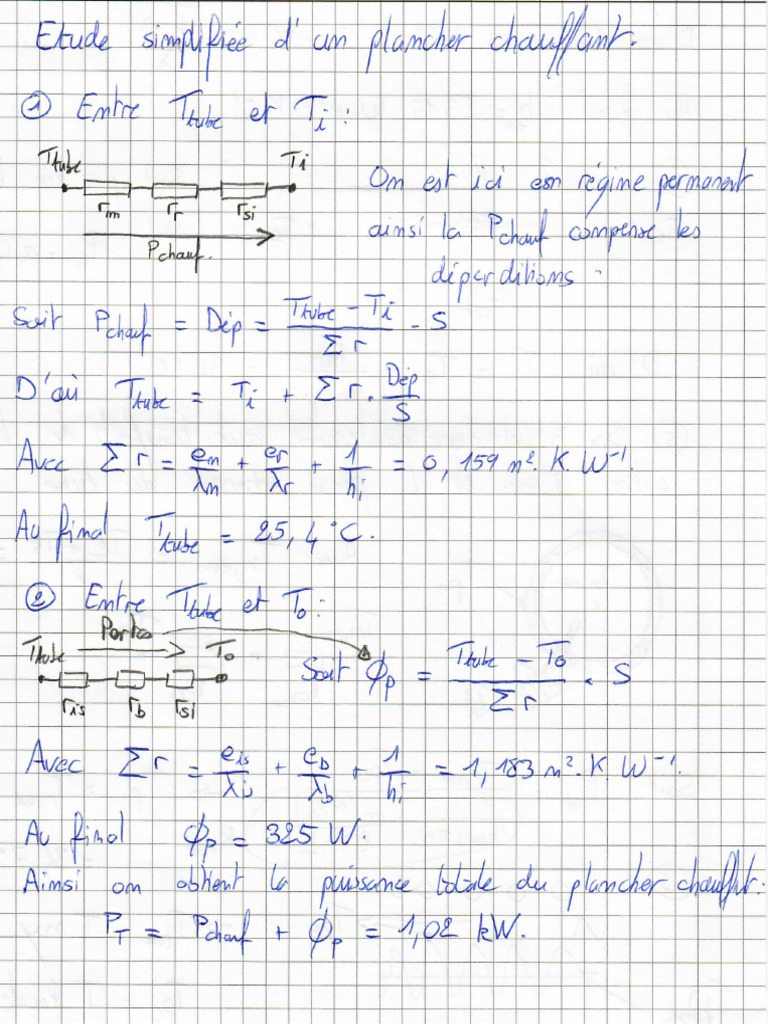 Etude simplifiée d'un plancher chauffant.
① Entre T_tube et T_i :
T_tube T_i
r_m r_r r_si
P_chauf.
On est ici en régime permanent
ainsi la P_chauf compense les
déperditions.
Soit P_chauf = Dép = (T_tube - T_i)/(Σ r) · S
D'où T_tube = T_i + Σ r · Dép/S
Avec Σ r = e_m/λ_m + e_r/λ_r + 1/h_i = 0,159 m².K.W⁻¹.
Au final T_tube = 25,4 °C.
② Entre T_tube et T_0 :
Pertes
T_tube T_0
r_is r_b r_si
Soit ϕ_p = (T_tube - T_0)/(Σ r) · S
Avec Σ r = e_is/λ_is + e_b/λ_b + 1/h_i = 1,183 m².K.W⁻¹.
Au final ϕ_p = 325 W.
Ainsi on obtient la puissance totale du plancher chauffant :
P_T = P_chauf + ϕ_p = 1,02 kW.